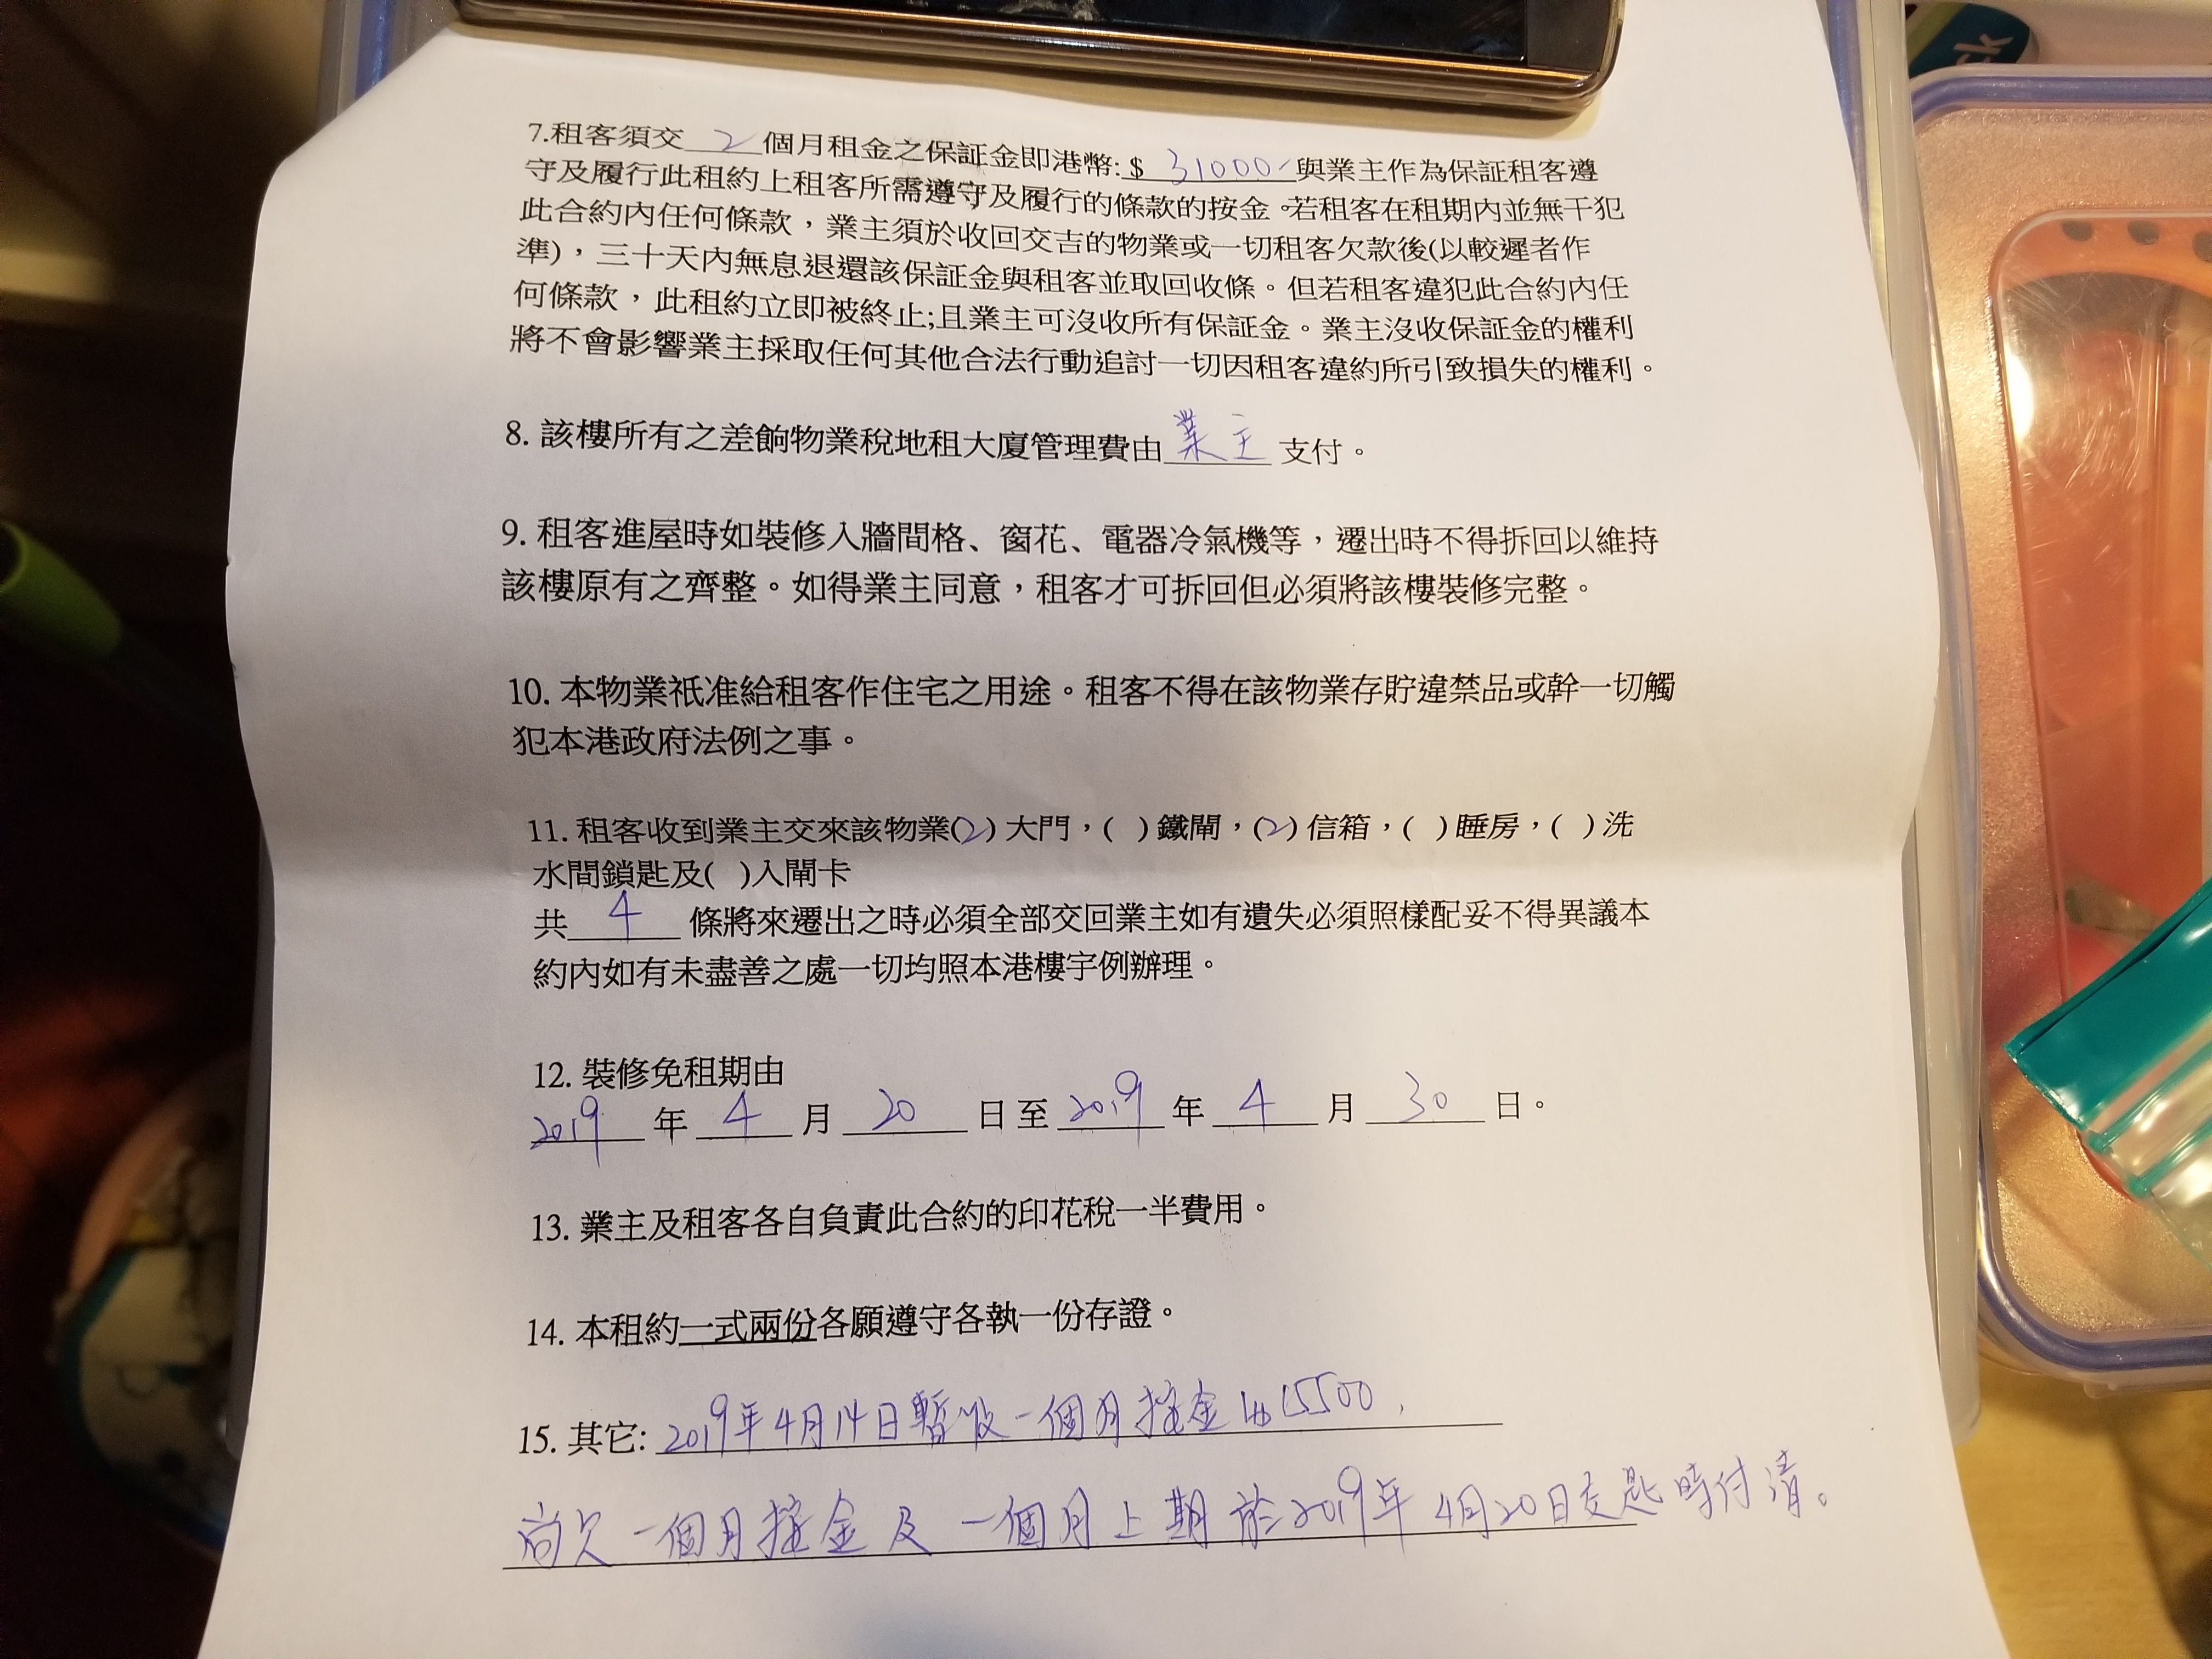 ck
7.租客須交 2 個月租金之保証金即港幣:$ 31000 與業主作為保証租客遵
守及履行此租約上租客所需遵守及履行的條款的按金。若租客在租期內並無干犯
此合約內任何條款，業主須於收回交吉的物業或一切租客欠款後(以較遲者作
準)，三十天內無息退還該保証金與租客並取回收條。但若租客違犯此合約內任
何條款，此租約立即被終止;且業主可沒收所有保証金。業主沒收保証金的權利
將不會影響業主採取任何其他合法行動追討一切因租客違約所引致損失的權利。
8. 該樓所有之差餉物業稅地租大廈管理費由 業主 支付。
9. 租客進屋時如裝修入牆間格、窗花、電器冷氣機等，遷出時不得拆回以維持
該樓原有之齊整。如得業主同意，租客才可拆回但必須將該樓裝修完整。
10. 本物業祇准給租客作住宅之用途。租客不得在該物業存貯違禁品或幹一切觸
犯本港政府法例之事。
11. 租客收到業主交來該物業(2) 大門，( ) 鐵閘，(2) 信箱，( ) 睡房，( ) 洗
水間鎖匙及( )入閘卡
共 4 條將來遷出之時必須全部交回業主如有遺失必須照樣配妥不得異議本
約內如有未盡善之處一切均照本港樓宇例辦理。
12. 裝修免租期由
2019 年 4 月 20 日 至 2019 年 4 月 30 日。
13. 業主及租客各自負責此合約的印花稅一半費用。
14. 本租約一式兩份各願遵守各執一份存證。
15. 其它: 2019年4月14日暫收一個月按金 15500,
尚欠一個月按金及一個月上期於2019年4月20日交匙時付清。